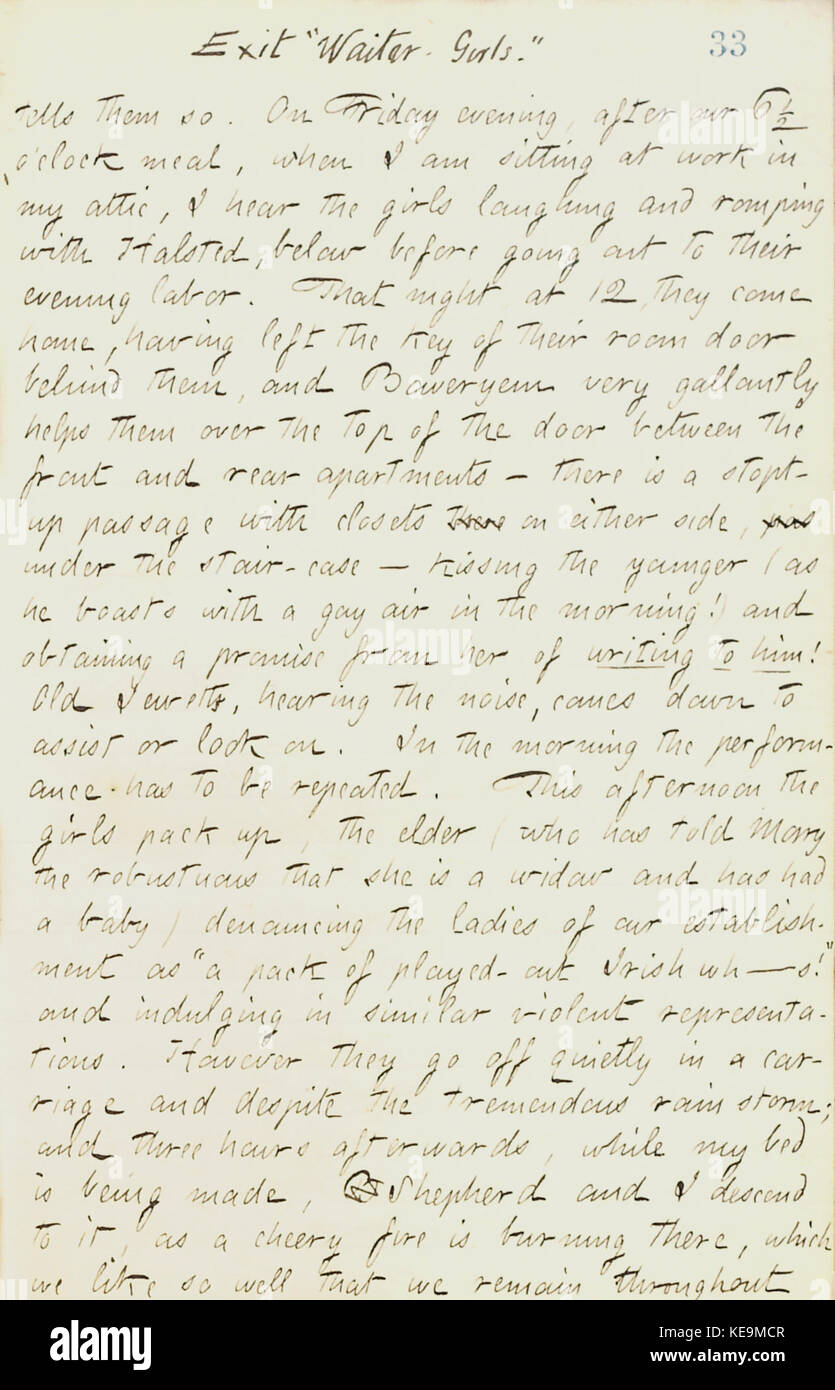 Exit "Waiter-Girls."
33
tells them so. On Friday evening, after our 6 1/2
o'clock meal, when I am sitting at work in
my attic, I hear the girls laughing and romping
with Halsted, below before going out to their
evening labor. That night at 12, they come
home, having left the key of their room door
behind them, and Boweryem very gallantly
helps them over the top of the door between the
front and rear apartments — there is a stopt-
up passage with closets there on either side, pas
under the stair-case — kissing the younger (as
he boasts with a gay air in the morning!) and
obtaining a promise from her of writing to him!
Old Jewett, hearing the noise, comes down to
assist or look on. In the morning the perform-
ance has to be repeated. This afternoon the
girls pack up, the elder (who has told Mary
the robustuous that she is a widow and has had
a baby) denouncing the ladies of our establish-
ment as "a pack of played-out Irish wh—s!"
and indulging in similar violent representa-
tions. However they go off quietly in a car-
riage and despite the tremendous rain storm;
and three hours afterwards, while my bed
is being made, Shepherd and I descend
to it, as a cheery fire is burning there, which
we like so well that we remain throughout
alamy
Image ID: KE9MCR
www.alamy.com